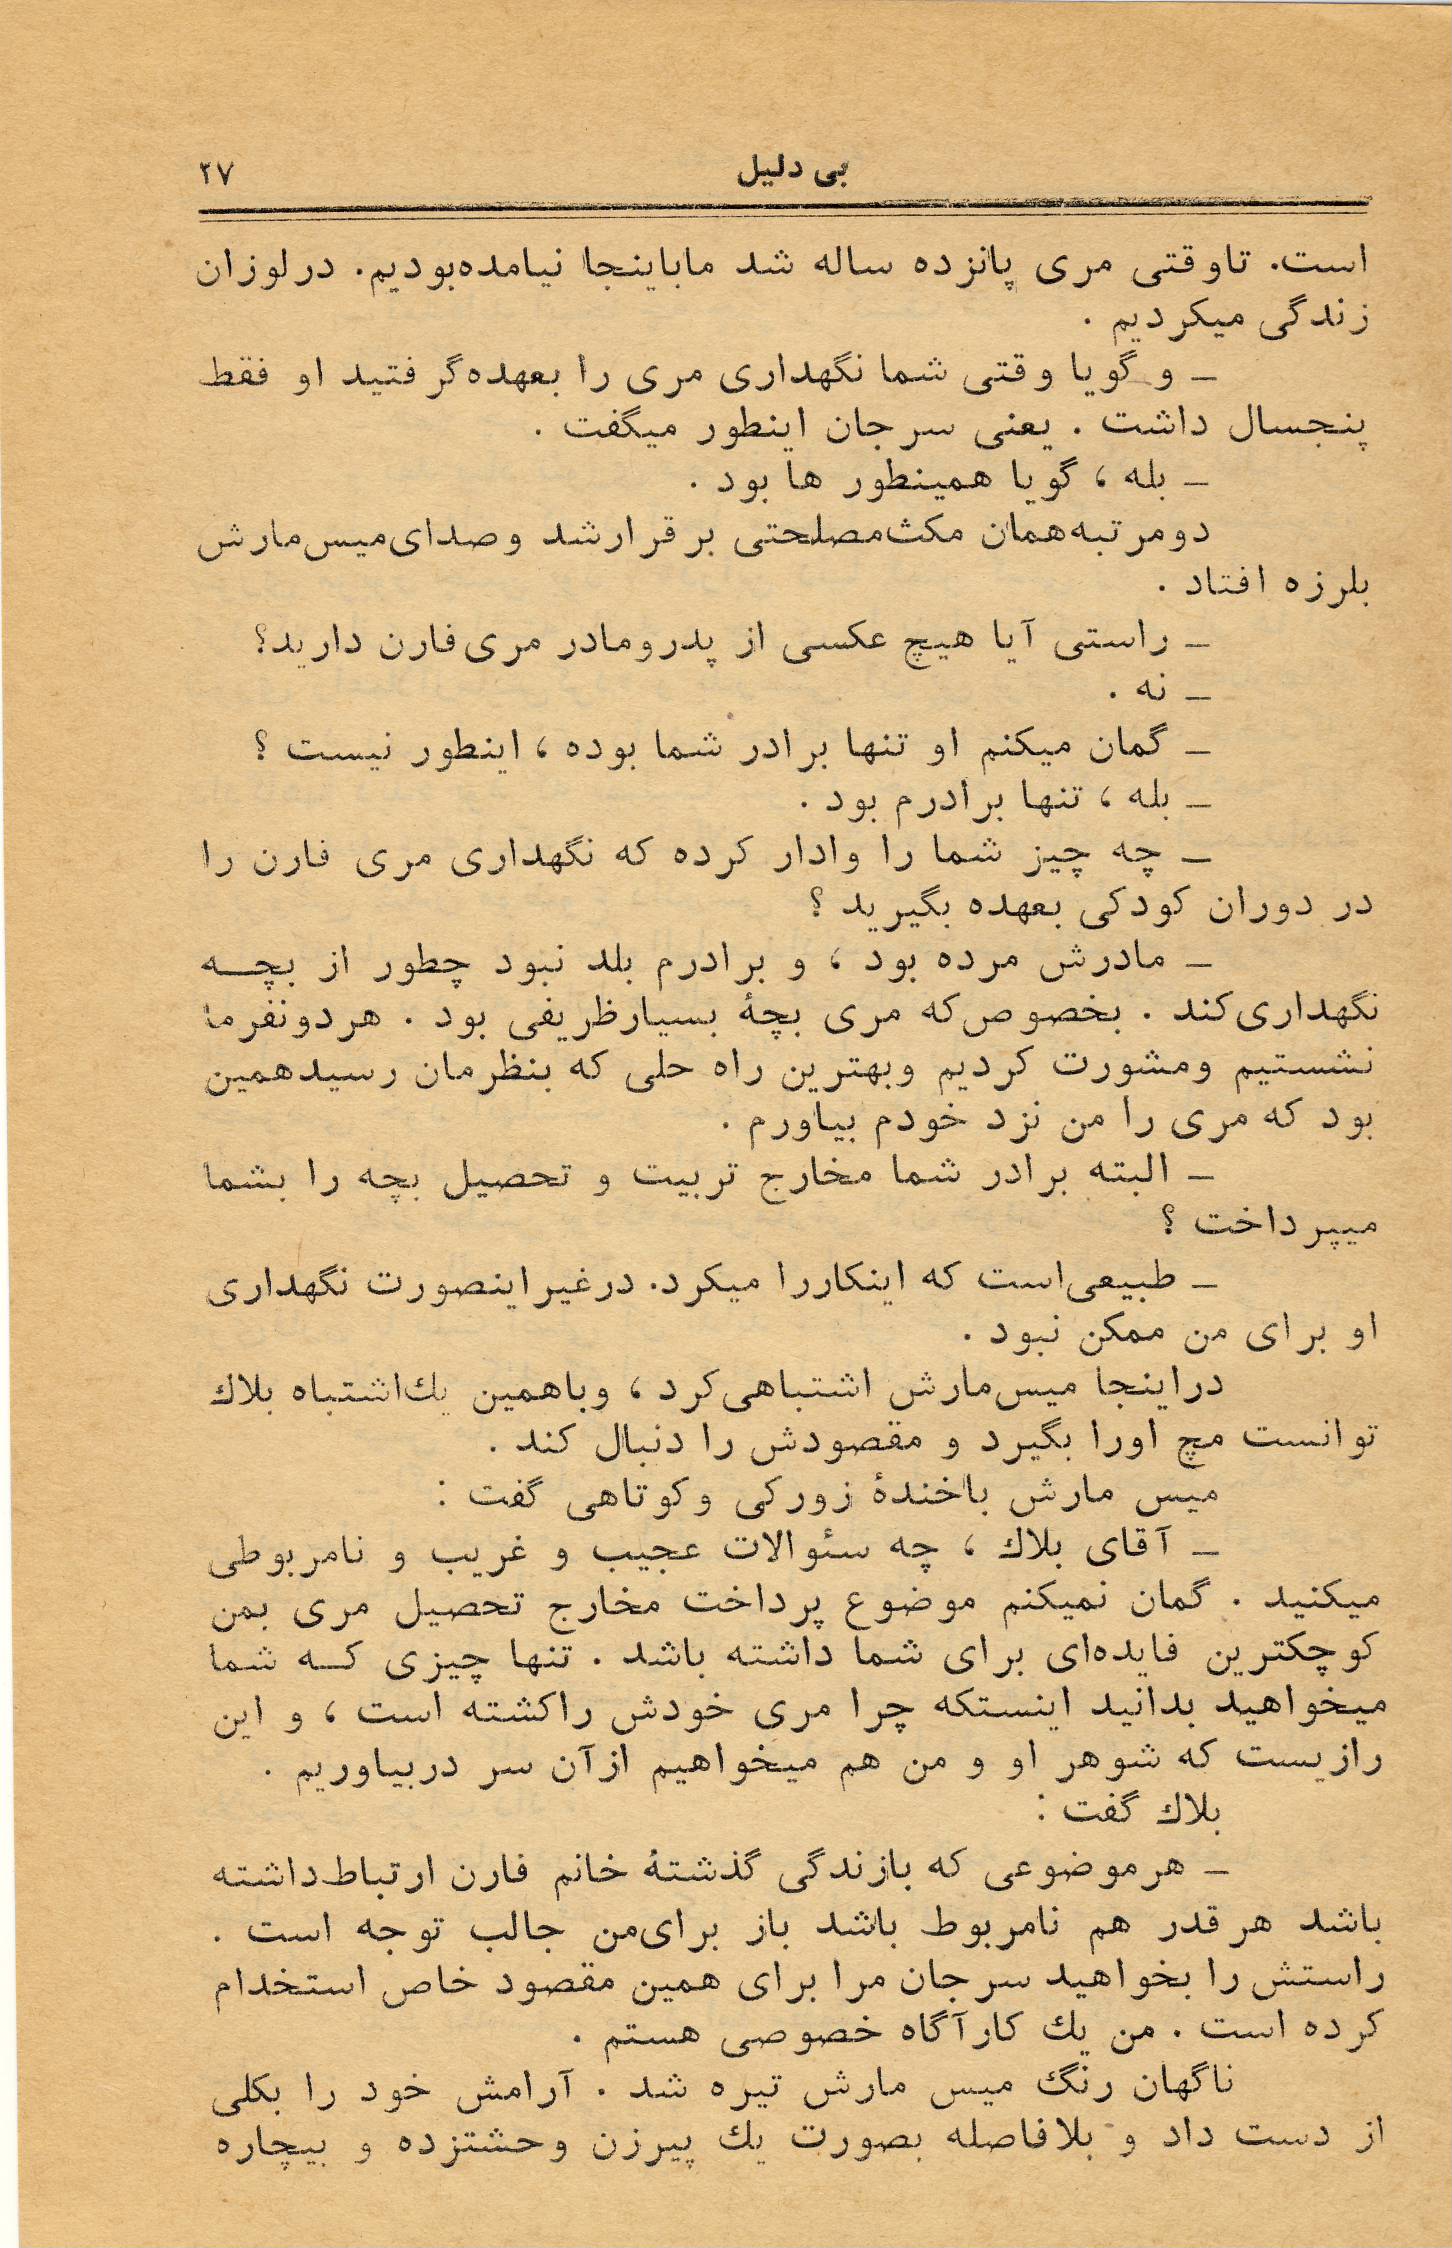 بی دلیل
۲۷
است. تاوقتی مری پانزده ساله شد مابا‌ینجا نیامده‌بودیم. درلوزان
زندگی میکردیم .
ــ و گویا وقتی شما نگهداری مری را بعهده‌گرفتید او فقط
پنجسال داشت . یعنی سرجان اینطور میگفت .
ــ بله ، گویا همینطور ها بود .
دومرتبه‌همان مکث‌مصلحتی برقرارشد وصدای‌میس‌مارش
بلرزه افتاد .
ــ راستی آیا هیچ عکسی از پدرومادر مری‌فارن دارید؟
ــ نه .
ــ گمان میکنم او تنها برادر شما بوده ، اینطور نیست ؟
ــ بله ، تنها برادرم بود .
ــ چه چیز شما را وادار کرده که نگهداری مری فارن را
در دوران کودکی بعهده بگیرید ؟
ــ مادرش مرده بود ، و برادرم بلد نبود چطور از بچــه
نگهداری‌کند . بخصوص‌که مری بچهٔ بسیارظریفی بود . هردونفرما
نشستیم ومشورت کردیم وبهترین راه حلی که بنظرمان رسیدهمین
بود که مری را من نزد خودم بیاورم .
ــ البته برادر شما مخارج تربیت و تحصیل بچه را بشما
میپرداخت ؟
ــ طبیعی‌است که اینکاررا میکرد. درغیراینصورت نگهداری
او برای من ممکن نبود .
دراینجا میس‌مارش اشتباهی‌کرد ، وباهمین یك‌اشتباه بلاك
توانست مچ اورا بگیرد و مقصودش را دنبال کند .
میس مارش باخندهٔ زورکی وکوتاهی گفت :
ــ آقای بلاك ، چه سئوالات عجیب و غریب و نامربوطی
میکنید . گمان نمیکنم موضوع پرداخت مخارج تحصیل مری بمن
کوچکترین فایده‌ای برای شما داشته باشد . تنها چیزی کــه شما
میخواهید بدانید اینستکه چرا مری خودش راکشته است ، و این
رازیست که شوهر او و من هم میخواهیم ازآن سر دربیاوریم .
بلاك گفت :
ــ هرموضوعی که بازندگی گذشتهٔ خانم فارن ارتباط‌داشته
باشد هرقدر هم نامربوط باشد باز برای‌من جالب توجه است .
راستش را بخواهید سرجان مرا برای همین مقصود خاص استخدام
کرده است . من یك کارآگاه خصوصی هستم .
ناگهان رنگ میس مارش تیره شد . آرامش خود را بکلی
از دست داد و بلافاصله بصورت یك پیرزن وحشتزده و بیچاره